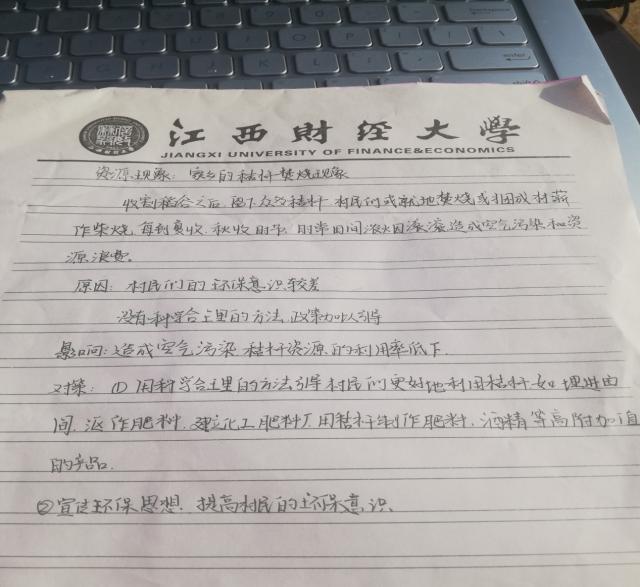 江西财经大学
JIANGXI UNIVERSITY OF FINANCE&ECONOMICS
资源现象：家乡的秸秆焚烧现象
收割稻谷之后，留下众多秸秆，村民们或就地焚烧或捆成材薪
作柴烧，每到夏收、秋收时节，时常田间浓烟滚滚造成空气污染和资
源浪费。
原因：村民们的环保意识较差
没有科学合理的方法、政策加以引导
影响：造成空气污染 秸秆资源的利用率低下.
对策：① 用科学合理的方法引导村民们更好地利用秸秆如埋进田
间，沤作肥料，建立化工肥料厂用秸秆制作肥料、酒精等高附加值
的产品.
②宣传环保思想，提高村民的环保意识.